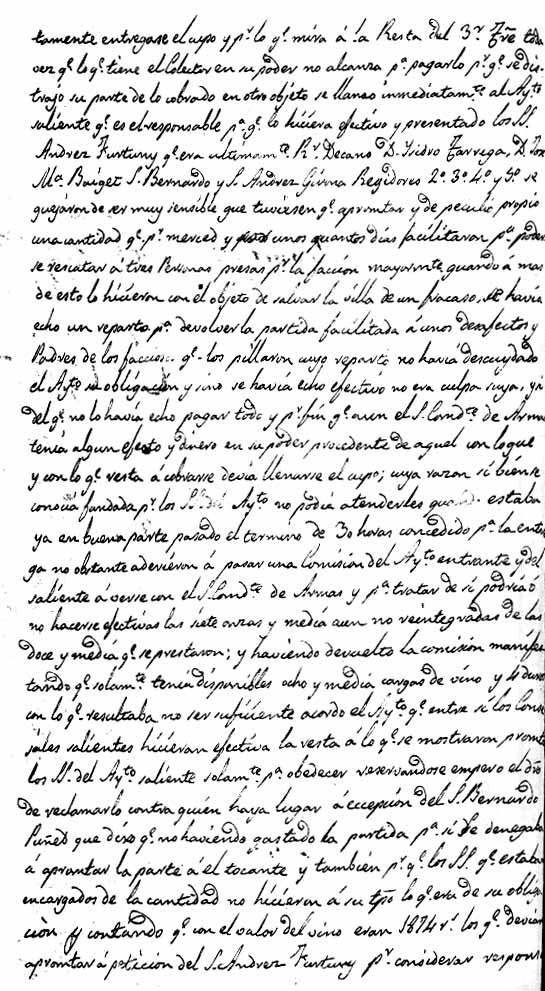 tamente entregase el cupo y pr. lo q. mira á la Resta del 3r. Trẽ toda
vez q. lo q. tiene el Colector en su poder no alcanza pa. pagarlo pr. q. se dis-
trajo su parte de lo cobrado en otro objeto se llamó inmediatamte. al Aÿto
saliente q. es el responsable pa. q. lo hiciera efectivo y presentado los SS.
Andrez Furtuny q. era ultimamte. Rr. Decano D. Isidro Tarrega, D. Jose
Ma. Baiget S. Bernardo y S. Andrez Girona Regidores 2o. 3o. 4o. y 5o. se
quejáron de ser muy sensible que tuviesen q. aprontar y de peculio propio
una cantidad q. pr. merced y unos quantos dias facilitaron pa. poder
se rescatar á tres Personas presas pr. la facción mayormte quando á mas
de esto lo hicieron con el objeto de salvar la villa de un fracaso, se havia
echo un reparto pa. devolver la partida facilitada á unos desafectos y
Padres de los facciosos q. los pillaron cuyo reparto no havia descuydado
el Aÿto su obligación y sino se havia echo efectivo no era culpa suya, ya
del q. no lo havia echo pagar todo y pr. fin q. aun el S. Comdte. de Armas
tenia algun efecto y dinero en su poder procedente de aquel con loque
y con lo q. resta á cobrarse devia llenarse el cupo; cuya razon si bien se
conocia fundada pr. los Ss. del Aÿto no podia atenderles quando estaba
ya en buena parte pasado el termino de 30 horas concedido pa. la entre
ga no obstante adevieron á pasar una Comision del Aÿto entrante y del
saliente á verse con el S. Comdte. de Armas y pa. tratar de si podria ó
no hacerse efectivas las siete onzas y media aun no reintegradas de las
doce y media q. se prestaron; y haviendo devuelto la comisión manifes
tando q. solamte. tenia disponibles ocho y media cargas de vino y 4 duros
con lo q. resultaba no ser suficiente acordo el Aÿto q. entre si los Conse
jales salientes hicieran efectiva la resta á lo q. se mostraron promtos
los Ss. del Aÿto saliente solamte. pa. obedecer reservandose empero el dro.
de reclamarlo contra quien haya lugar á ecepción del S. Bernardo
Puñed que dixo q. no haviendo gastado la partida pa. si se denegaba
á aprontar la parte á él tocante y también pr. q. los SS. q. estaban
encargados de la cantidad no hicieron á su tpo. lo q. era de su obliga
ción y contando q. con el valor del vino eran 1874 rs. los q. devian
aprontar á petición del S. Andrez Furtuny pr. considerar respons